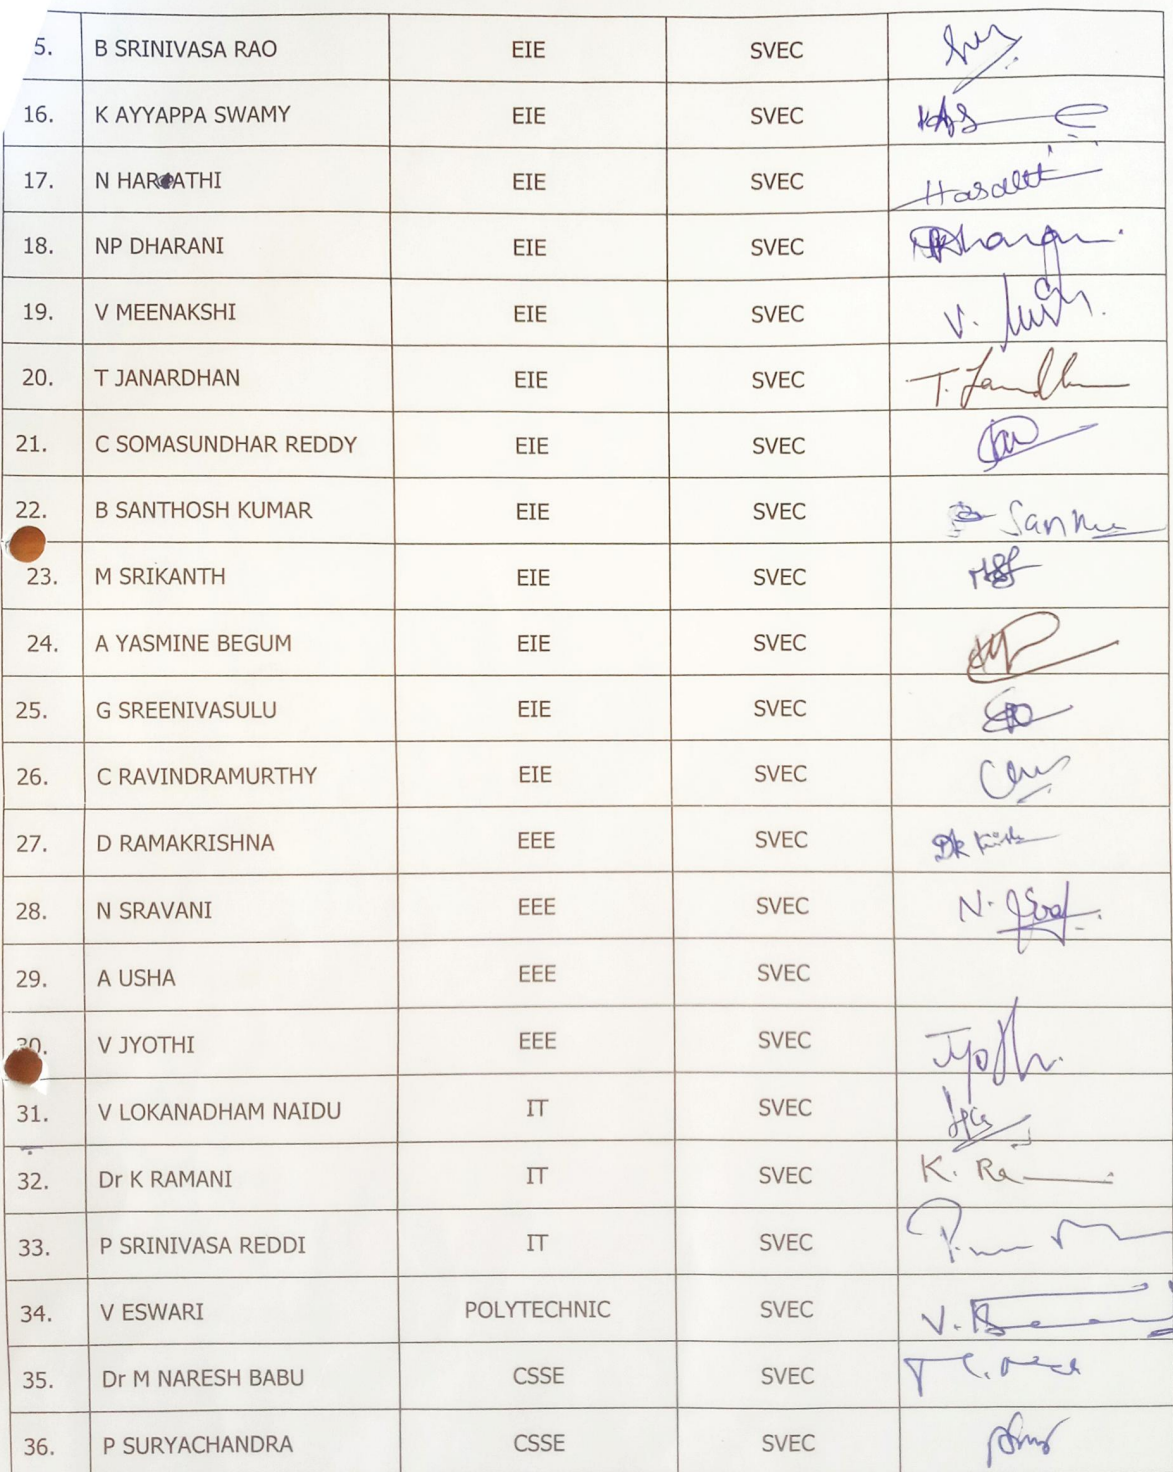 5. B SRINIVASA RAO EIE SVEC
16. K AYYAPPA SWAMY EIE SVEC KAS
17. N HAR ATHI EIE SVEC
18. NP DHARANI EIE SVEC
19. V MEENAKSHI EIE SVEC V.
20. T JANARDHAN EIE SVEC T.
21. C SOMASUNDHAR REDDY EIE SVEC
22. B SANTHOSH KUMAR EIE SVEC
23. M SRIKANTH EIE SVEC
24. A YASMINE BEGUM EIE SVEC
25. G SREENIVASULU EIE SVEC
26. C RAVINDRAMURTHY EIE SVEC
27. D RAMAKRISHNA EEE SVEC
28. N SRAVANI EEE SVEC N.
29. A USHA EEE SVEC
30. V JYOTHI EEE SVEC Jyothi.
31. V LOKANADHAM NAIDU IT SVEC
32. Dr K RAMANI IT SVEC K. Ra
33. P SRINIVASA REDDI IT SVEC
34. V ESWARI POLYTECHNIC SVEC V.
35. Dr M NARESH BABU CSSE SVEC
36. P SURYACHANDRA CSSE SVEC